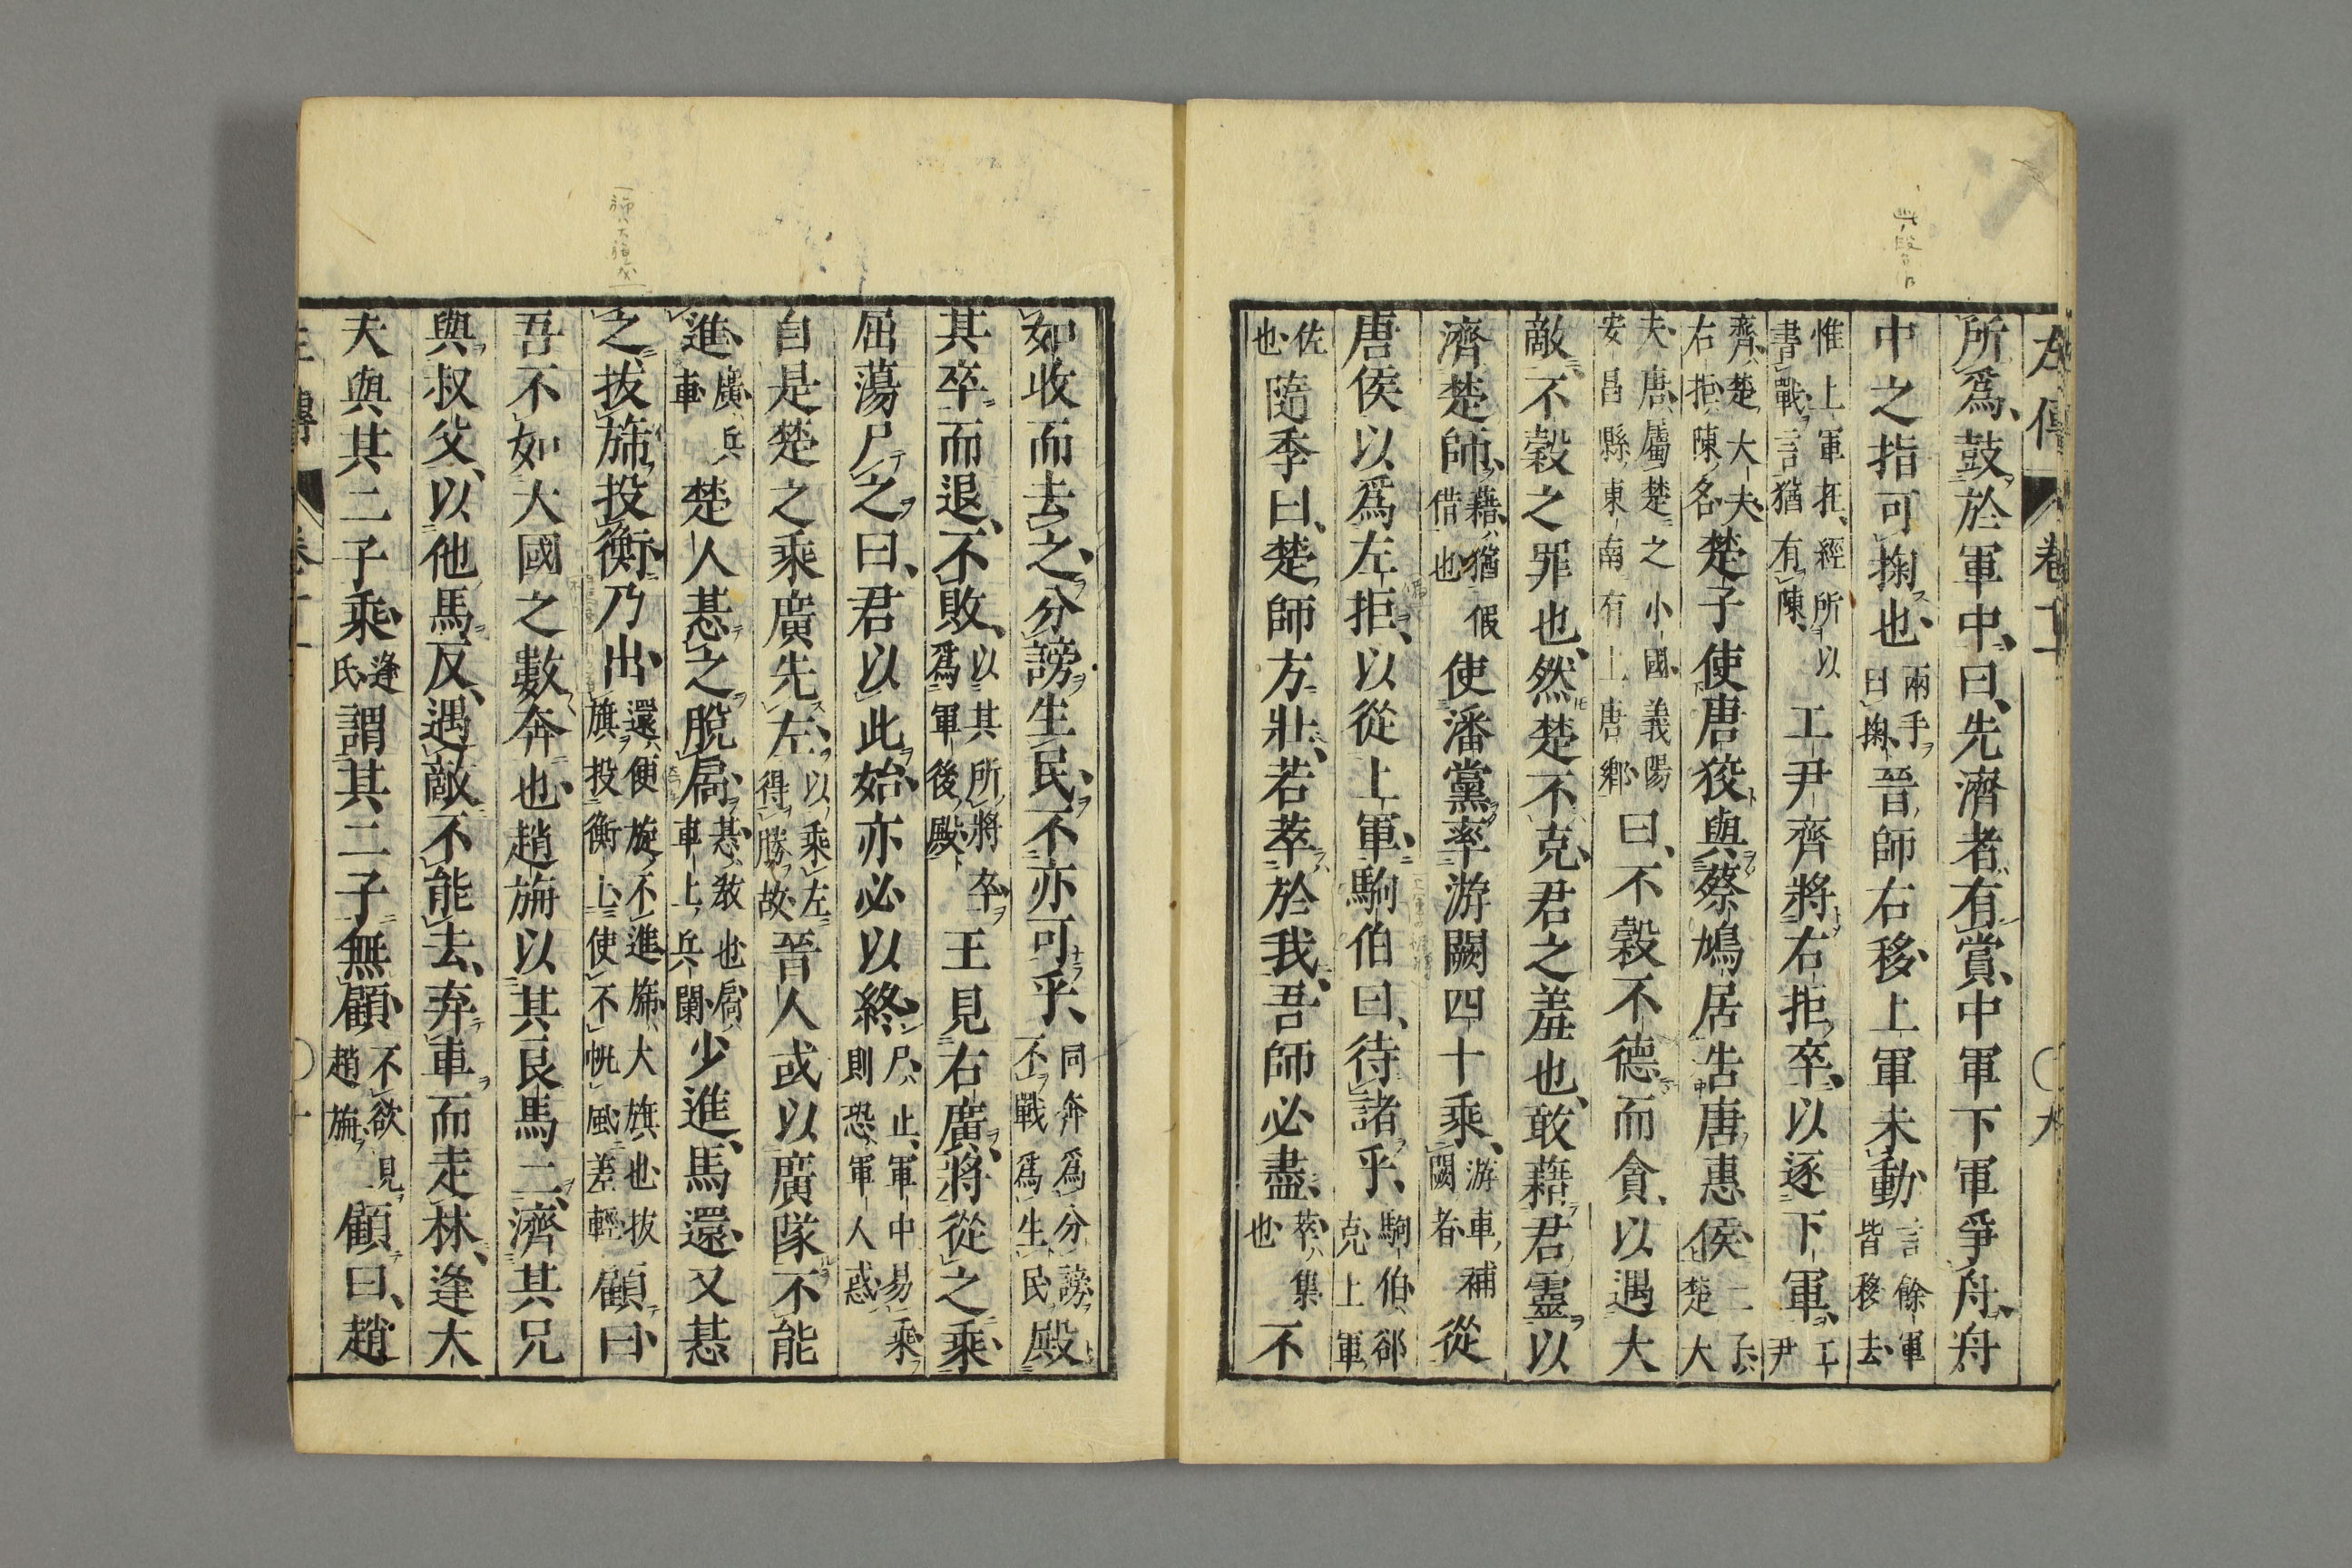 左傳 卷十一 〇九
所爲鼓於軍中曰先濟者有賞中軍下軍爭舟舟
中之指可掬也兩手曰掬晉師右移上軍未動言餘軍皆移去
惟上軍在經所以書戰言猶有陳工尹齊將右拒卒以逐下軍工尹
齊楚大夫右拒陳名楚子使唐狡與蔡鳩居告唐惠侯二子楚大
夫唐屬楚之小國義陽安昌縣東南有上唐鄕曰不穀不德而貪以遇大
敵不穀之罪也然楚不克君之羞也敢藉君靈以
濟楚師藉猶假借也使潘黨率游闕四十乘游車補闕者從
唐侯以爲左拒以從上軍駒伯曰待諸乎駒伯郤克上軍
佐也隨季曰楚師方壯若萃於我吾師必盡萃集也不
如收而去之分謗生民不亦可乎同奔爲分謗不戰爲生民殿
其卒而退不敗以其所將卒爲軍後殿王見右廣將從之乘
屈蕩尸之曰君以此始亦必以終尸止軍中易乘則恐軍人惑
自是楚之乘廣先左以乘左得勝故晉人或以廣隊不能
進廣兵車楚人惎之脫扃惎教也扃車上兵闌少進馬還又惎
之拔旆投衡乃出還便旋不進旆大旗也拔旗投衡上使不帆風差輕顧曰
吾不如大國之數奔也趙旃以其良馬二濟其兄
與叔父以他馬反遇敵不能去弃車而走林逢大
夫與其二子乘逢氏謂其二子無顧不欲見趙旃顧曰趙